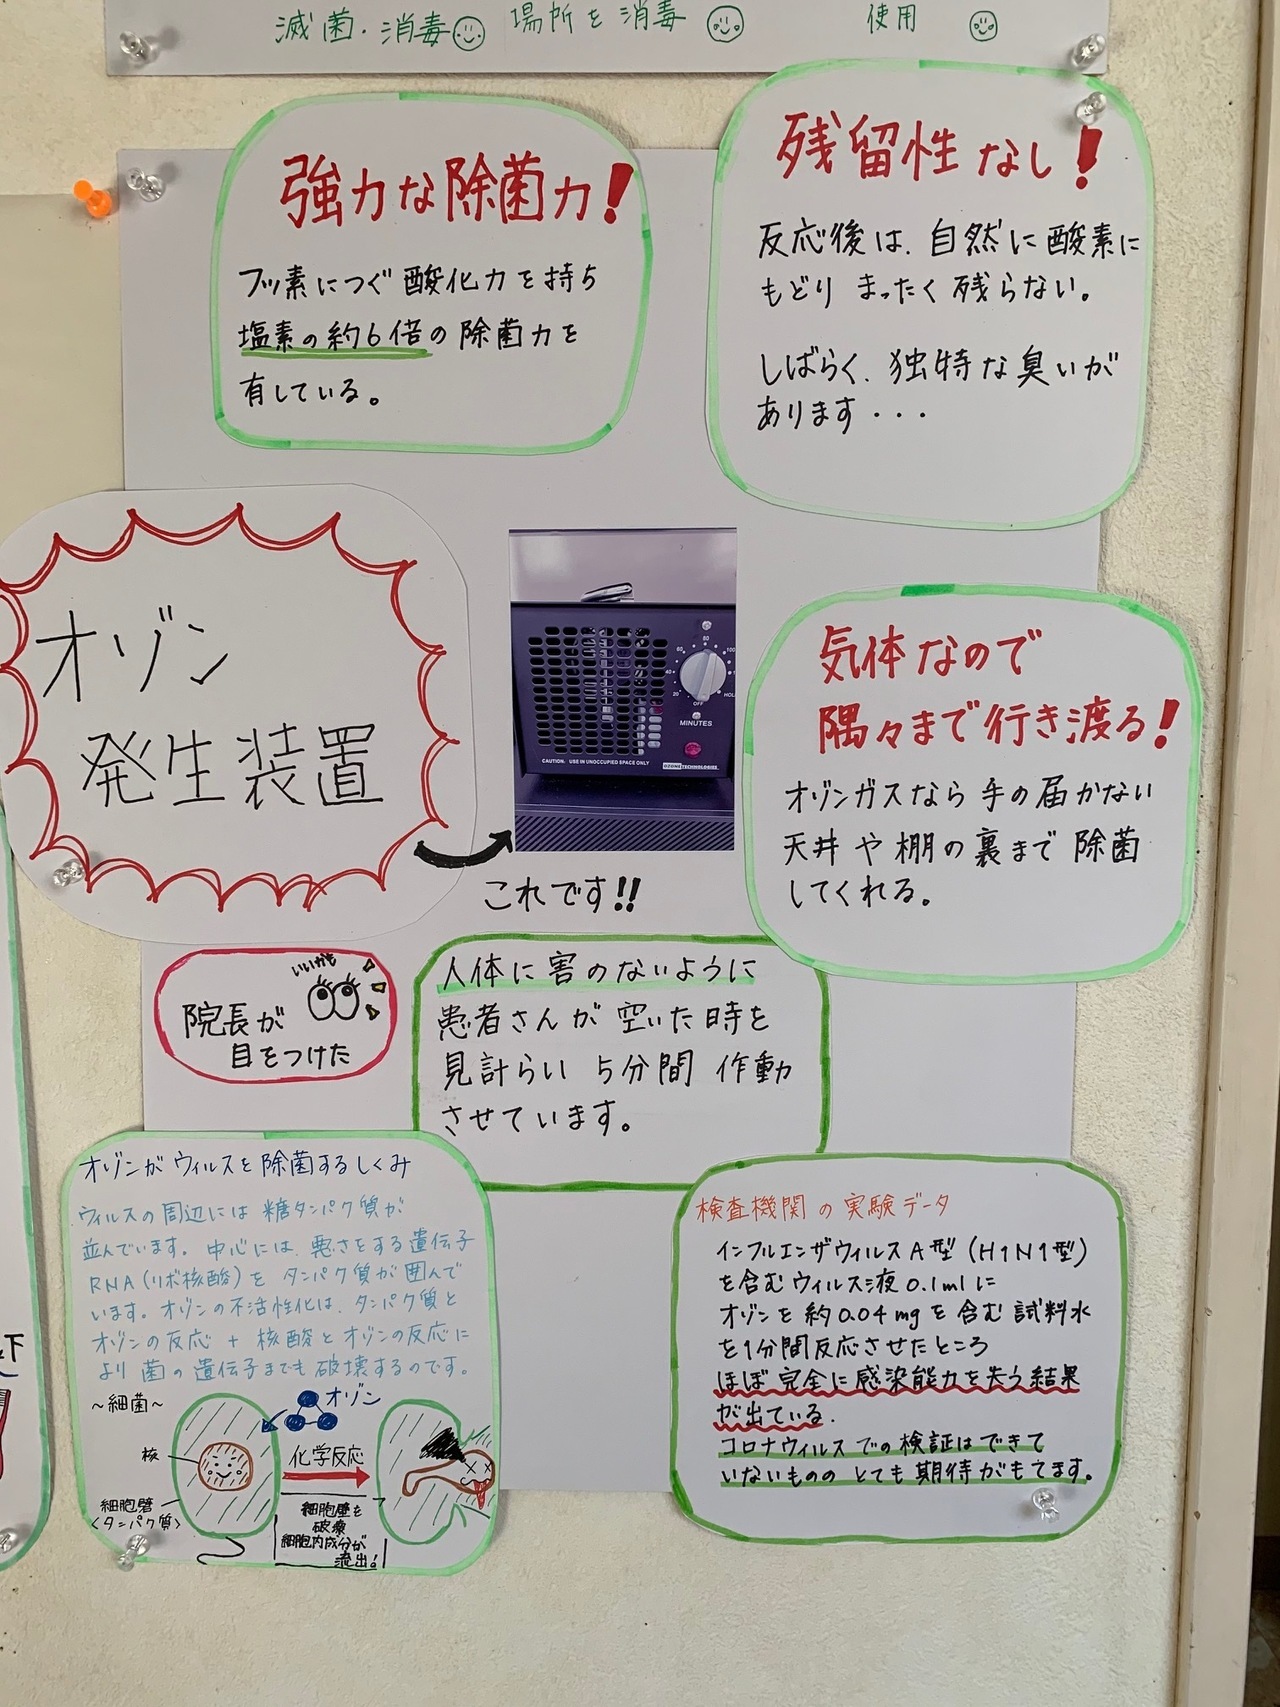 滅菌・消毒 場所を消毒 使用
強力な除菌力!
フッ素につぐ酸化力を持ち
塩素の約6倍の除菌力を
有している。
残留性なし!
反応後は、自然に酸素に
もどり まったく残らない。
しばらく、独特な臭いが
あります・・・
オゾン
発生装置
20
40
60
80
100
OFF
MINUTES
CAUTION: USE IN UNOCCUPIED SPACE ONLY
OZONE TECHNOLOGIES
これです!!
気体なので
隅々まで行き渡る!
オゾンガスなら手の届かない
天井や棚の裏まで除菌
してくれる。
いいかも
院長が
目をつけた
人体に害のないように
患者さんが空いた時を
見計らい 5分間 作動
させています。
オゾンがウィルスを除菌するしくみ
ウィルスの周辺には糖タンパク質が
並んでいます。中心には、悪さをする遺伝子
RNA(リボ核酸)をタンパク質が囲んで
います。オゾンの不活性化は、タンパク質と
オゾンの反応 + 核酸とオゾンの反応に
より菌の遺伝子までも破壊するのです。
~細菌~
オゾン
核
化学反応
細胞壁
<タンパク質>
細胞壁を
破壊
細胞内成分が
流出!
検査機関の実験データ
インフルエンザウィルスA型(H1N1型)
を含むウィルス液0.1mlに
オゾンを約0.04mgを含む試料水
を1分間反応させたところ
ほぼ完全に感染能力を失う結果
が出ている。
コロナウィルスでの検証はできて
いないもののとても期待がもてます。